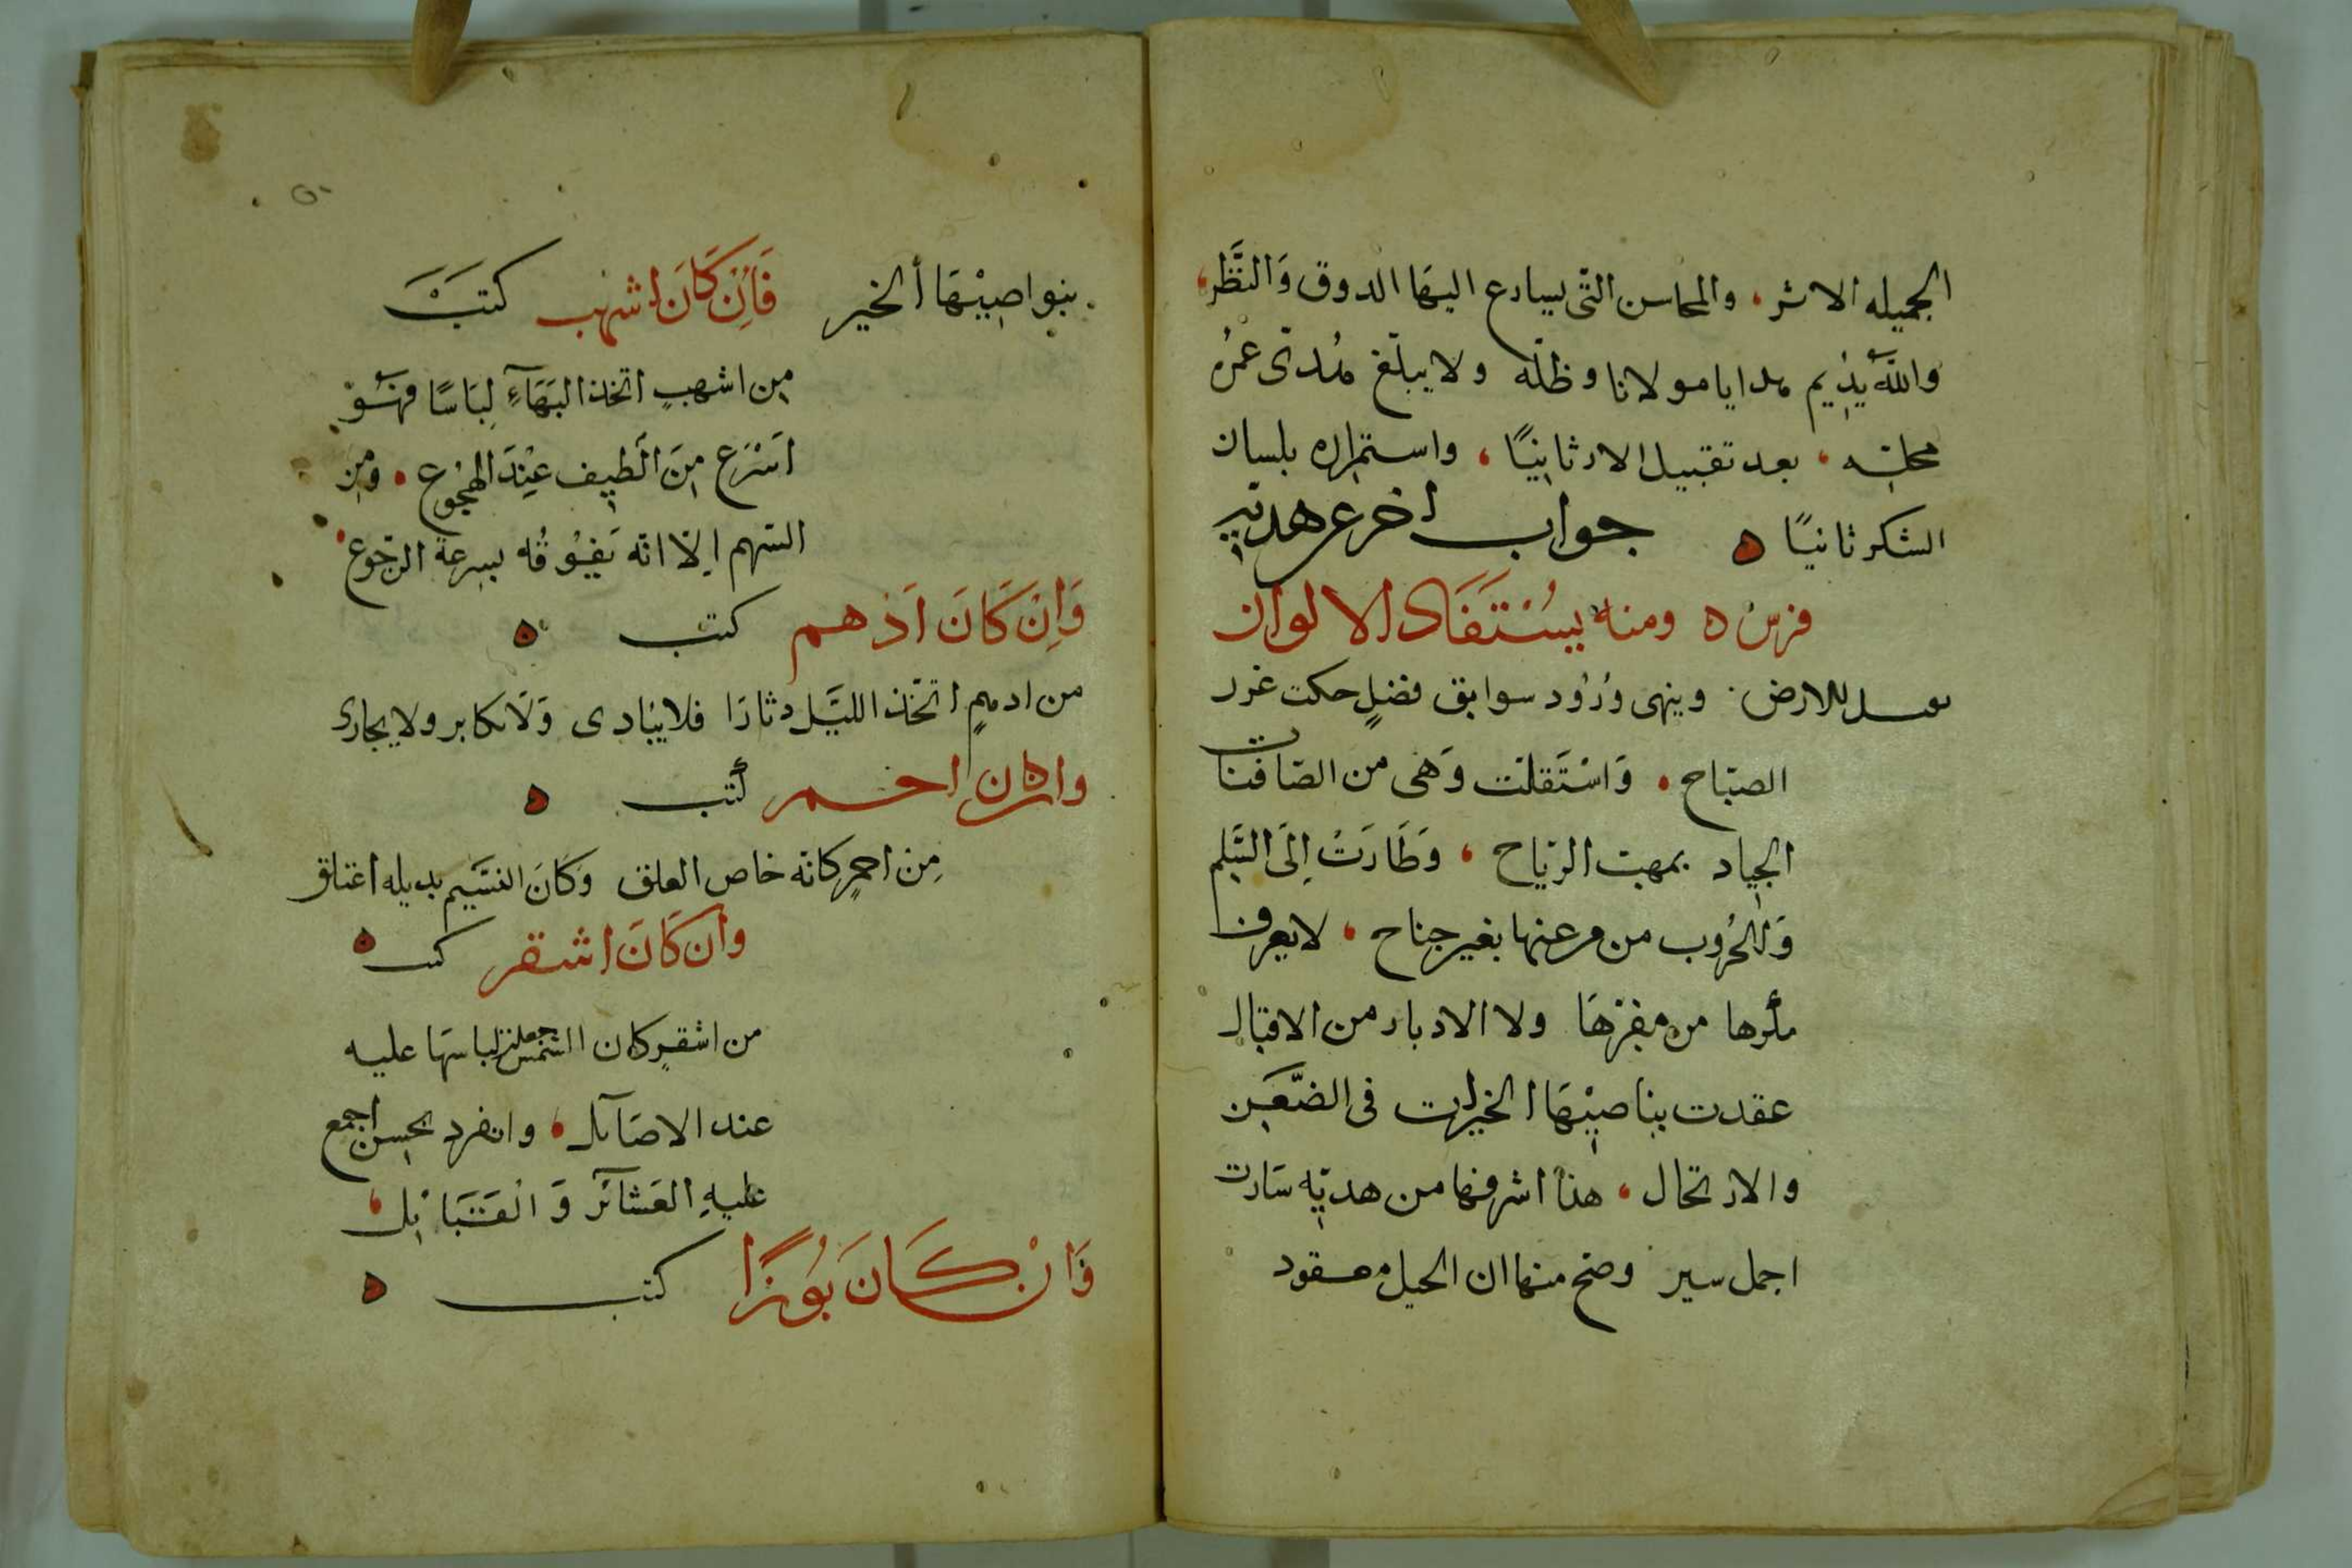 الجميله الاثر، والمحاسن التى يسارع اليها الدوق وَالنَّظر،
والله يديم هدايا مولانا وظله ولا يبلغ مُدتى عُمرُه
محلته، بعد تقبيل الارض ثانيًا، واستمراره بلسان
الشكر ثانيًا ه جواب اخر عن هدية
فرس ه ومنه يُسْتَفَاد الالوان
يقبل الارض. وينهى وُرُود سوابق فضلٍ حكت غرر
الصبَاح. وَاسْتَقلت وَهى من الصَافنات
الجياد بمهبت الريَاح، وَطَارَتْ اِلَى السَّلم
وَالحُرُوب من عنها بغير جناح، لا يعرف
مكرها من مفرهَا ولا الادبار من الاقبال
عقدت بناصيتهَا الخيرات فى الضَّعَن
والارتحال، هذا اشرفها من هديّه سَارت
اجمل سير وصح منها ان الخيل معقود
بنواصِيْهَا الخير فَاِنْ كَانَ اشهب كتبَ
مِن اشهبٍ اتخذ البَهَاءِ لِبَاسًا فهُوَ
اَسْرَع مِنَ الَطيِف عِنْدَ الهُجُوع. وَمِن
السَهم اِلّا انّه يَفُوقُه بسرعة الرجُوع
وَاِنْ كَانَ اَدْهم كتب ه
من ادهمٍ اتخّذ الليَل دثارَا فلا يبَادى وَلَا يكابر ولا يجارى
وان كان احمر كُتب ه
مِن احمرٍ كانّه خاص العلق وَكَانَ النسَيم بديله اعتلق
وان كَانَ اشقر كتب ه
من اشقرٍ كان الشمس لباسهَا عليه
عند الاصَآئل، وانفرد بحسن اجمع
عَليهِ العَشائر وَالقَبَائِل،
وَانْ كَانَ بُوزًا كتب ه